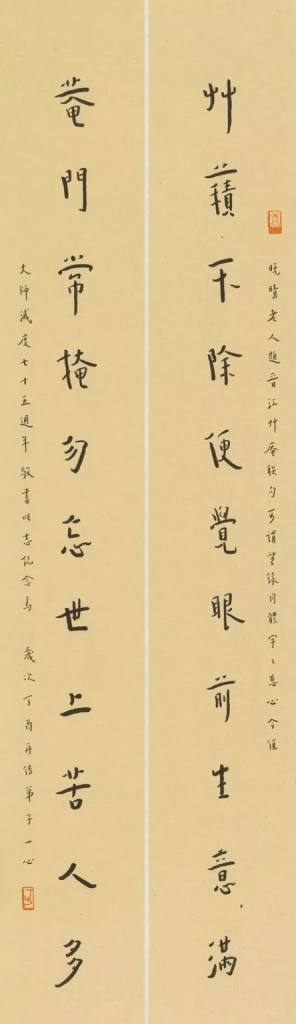 晚晴老人題晉江艸庵聯句可謂無緣同體字字悲心今值
艸藉不除便覺眼前生意滿
菴門常掩勿忘世上苦人多
大師滅度七十五週年敬書此志紀念焉 歲次丁酉再傳弟子一心